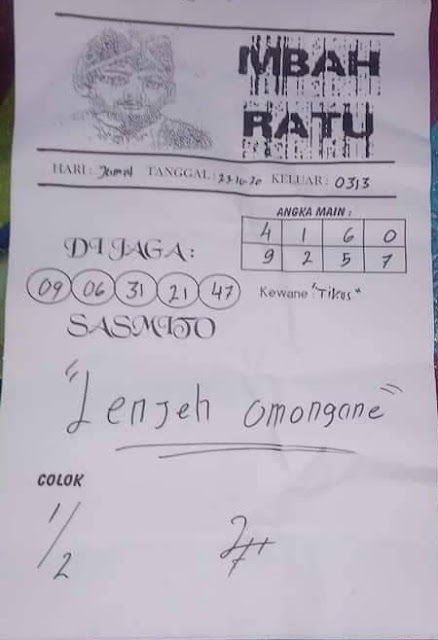 MBAH
RATU
HARI : Jumat TANGGAL : 23-10-20 KELUAR : 0313
ANGKA MAIN :
4 1 6 0
9 2 5 7
DI JAGA :
09 06 31 21 47
Kewane "Tikus"
SASMITO
"Lenjeh omongane"
COLOK
1/2